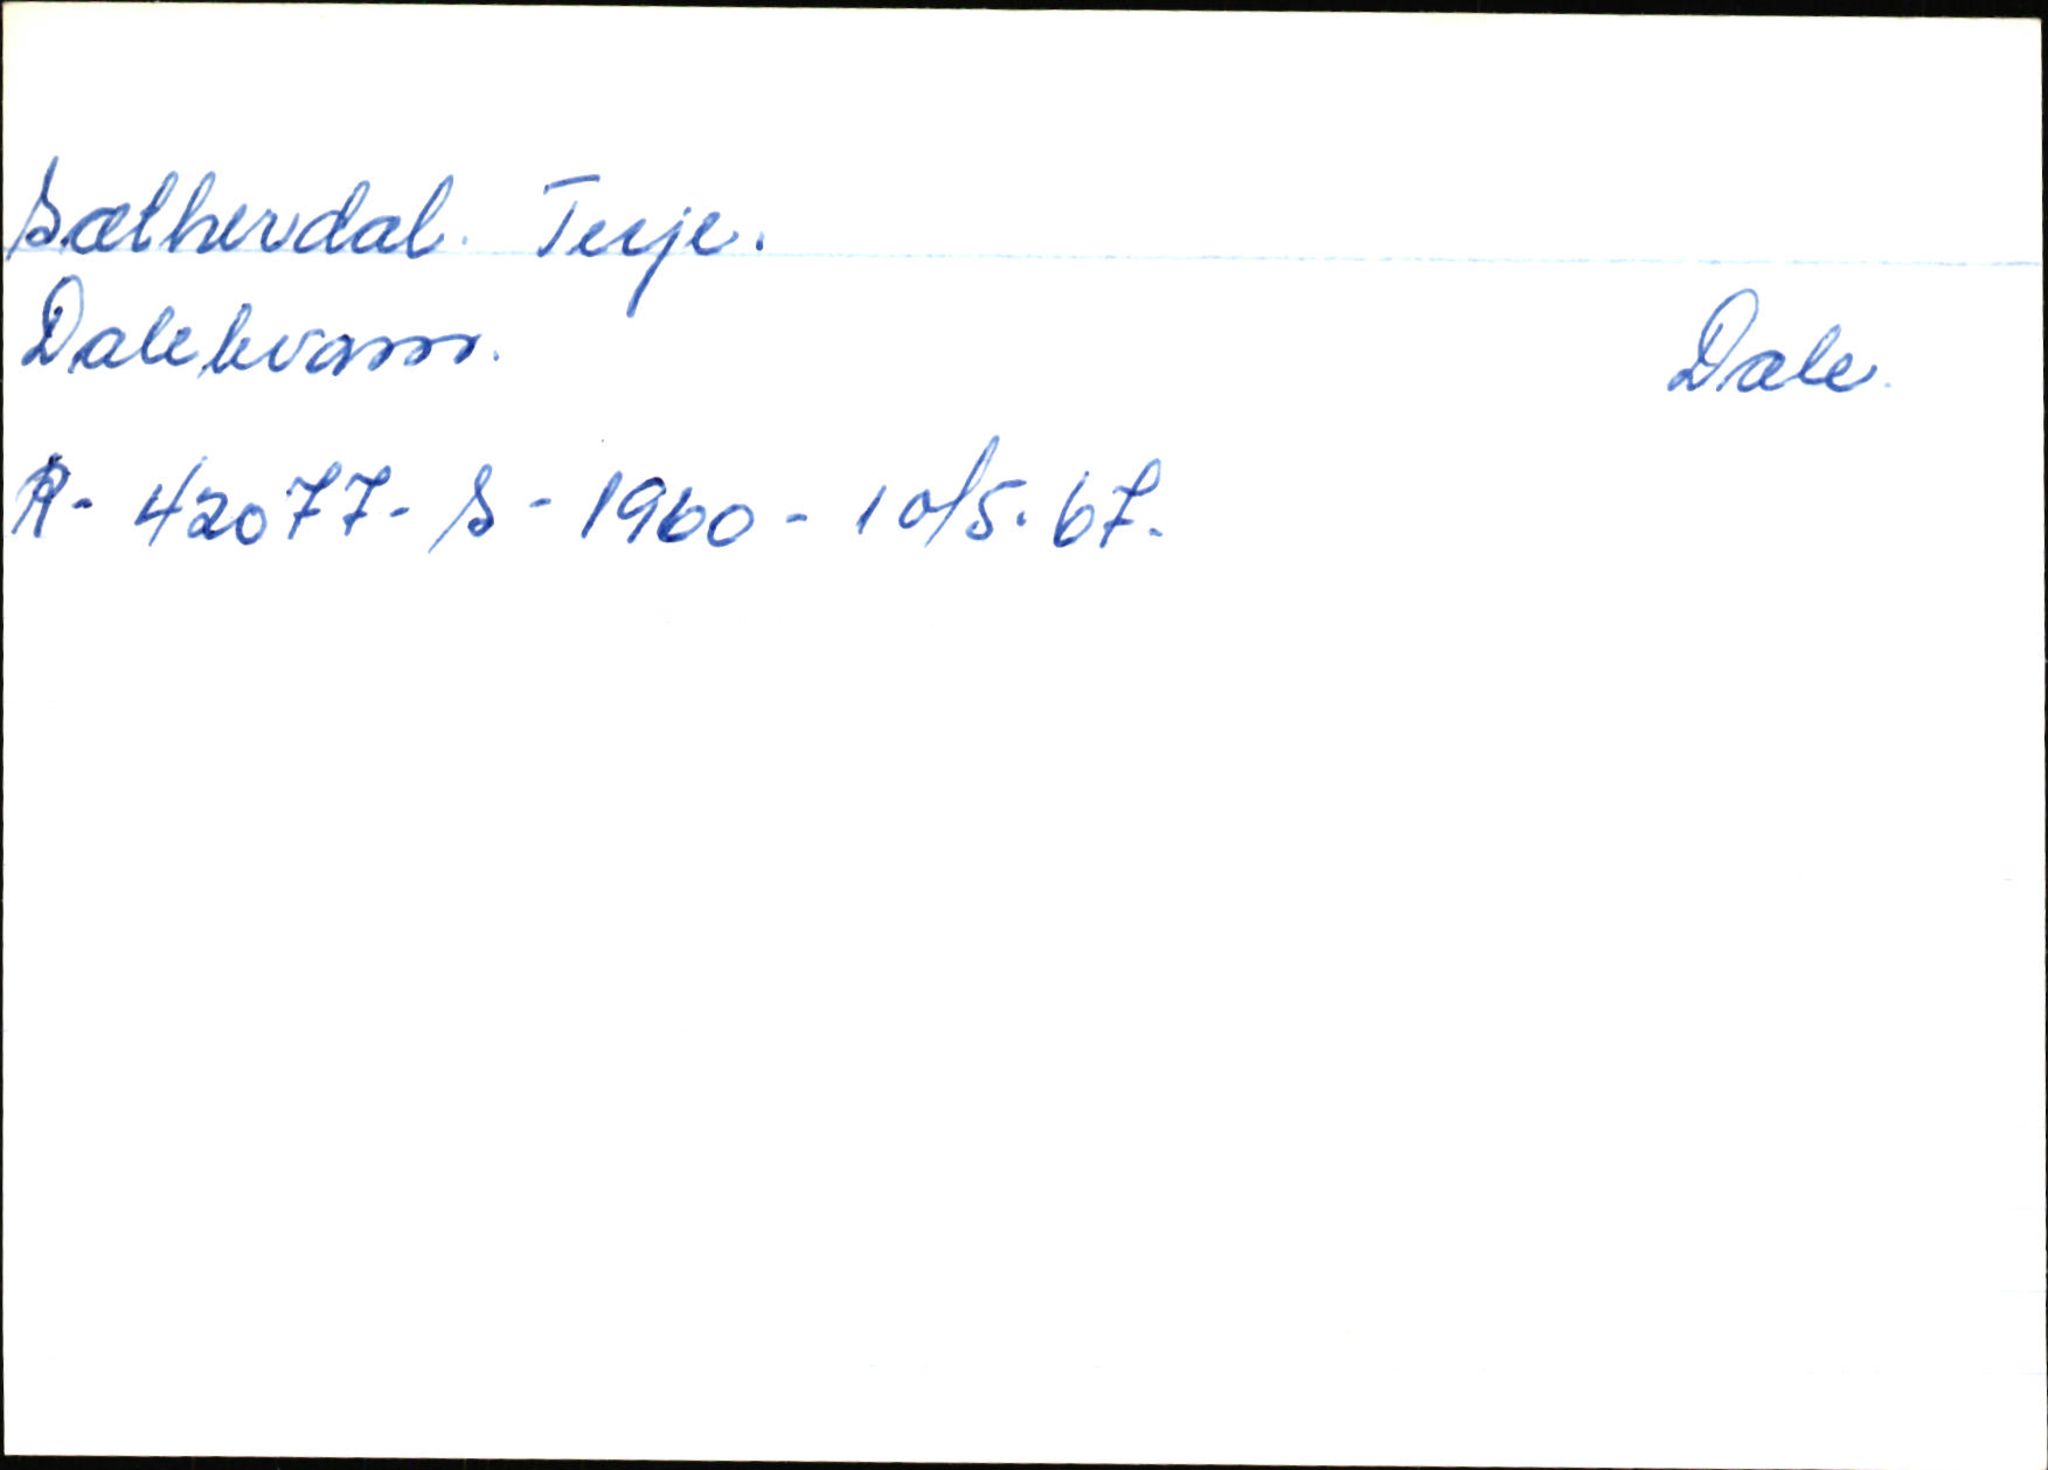 Sætherdal. Terje.
Dalekvam. Dale.
R- 42077- S - 1960 - 10/5.67.